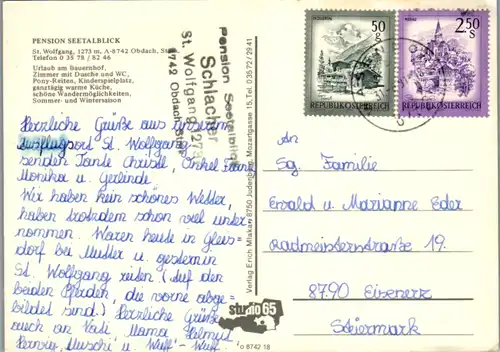 PENSION SEETALBLICK
St. Wolfgang, 1273 m, A-8742 Obdach,
Telefon 0 35 78 / 82 46
Urlaub am Bauernhof,
Zimmer mit Dusche und WC,
Pony-Reiten, Kinderspielplatz,
ganztägig warme Küche,
schöne Wandermöglichkeiten,
Sommer- und Wintersaison
Pension Seetalblick
Schlacher
St. Wolfgang
8742 Obdach, Stmk.
Herrliche Grüße aus unserem
Ausflugsort St. Wolfgang
senden Tante Christl, Onkel Franz
Monika u. Gerlinde.
Wir haben kein schönes Wetter,
haben trotzdem schon viel unter
nommen. Waren heute in Gleis-
dorf bei Mutter u. gestern in
St. Wolfgang reiten (Auf den
beiden Pferden, die vorne abge-
bildet sind.) Herrliche Grüße
auch an Vati Mama Helmut
Muschi u. Wuff-Wuff.
Verlag Erich Mlakan 8750 Judenburg, Mozartgasse 15, Tel. 0 35 72 / 29 41
studio 65
o 8742 18
50 S
REPUBLIK ÖSTERREICH
2,50 S
REPUBLIK ÖSTERREICH
An
Sg. Familie
Ewald u. Marianne Eder
Radmeisterstraße 19
8790 Eisenerz
Steiermark